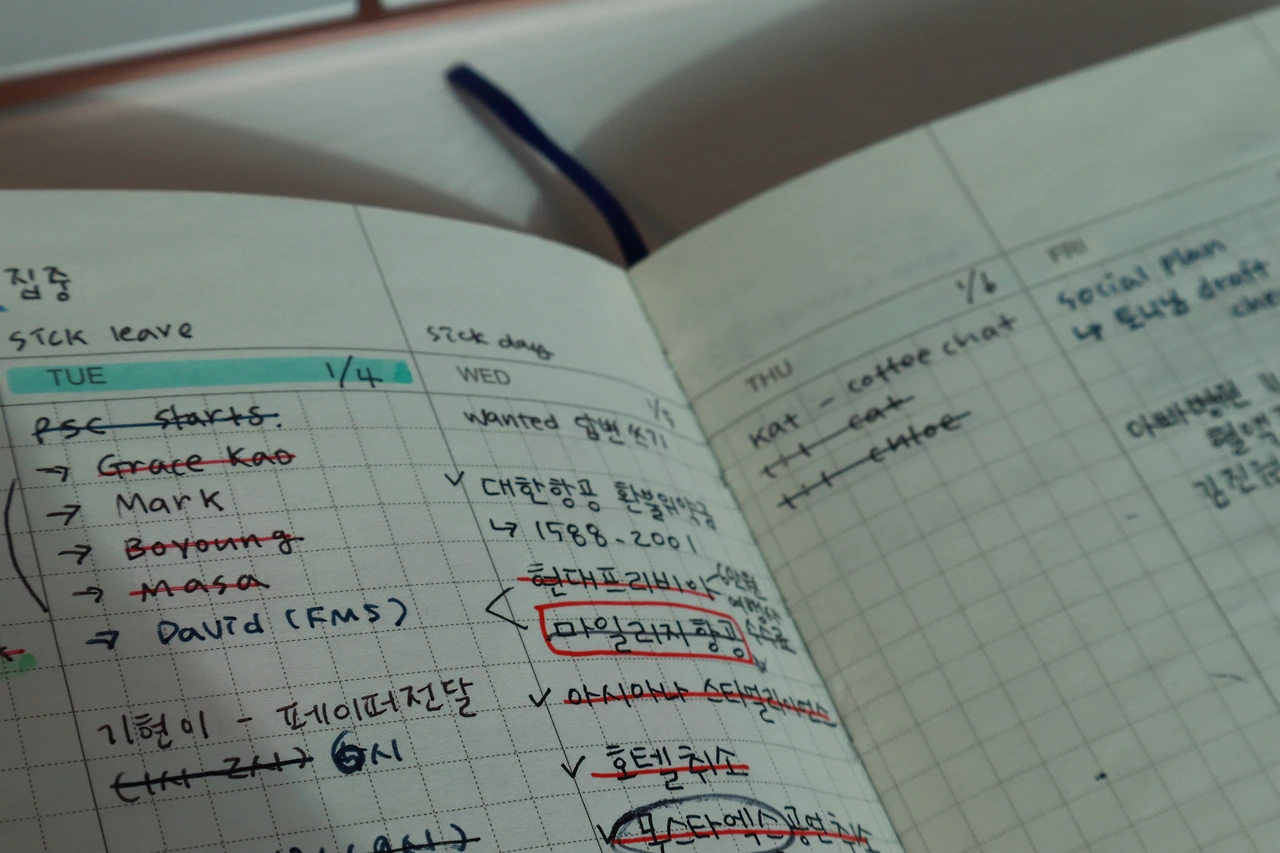 집중
sick leave
TUE 1/4
PSC starts.
→ Grace Kao
→ Mark
→ Boyoung
→ Masa
→ David (FMS)
기현이 - 페이퍼전달
(1시 2시) 6시
sick day
WED
wanted 답변쓰기
✓ 대한항공 환불위약금
↳ 1588-2001
현대프리비아
마일리지항공
✓ 아시아나
✓ 호텔취소
✓ 몬스타엑스 공연취소
THU 1/6
Kat - coffee chat
cat
chloe
FRI
social plan
↳ 토니님 draft